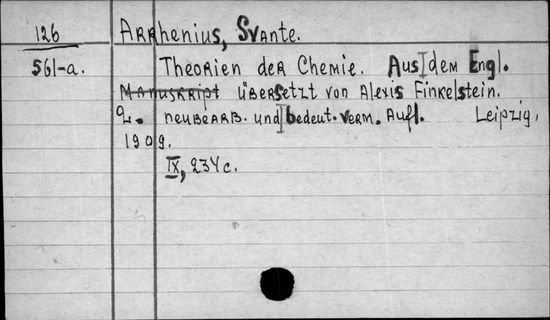 126 Arrhenius, Svante.
561-a. Theorien der Chemie. Aus dem Engl.
Manuskript übersetzt von Alexis Finkelstein.
2. neubearb. und bedeut. verm. Aufl. Leipzig,
1909.
IX, 234 c.